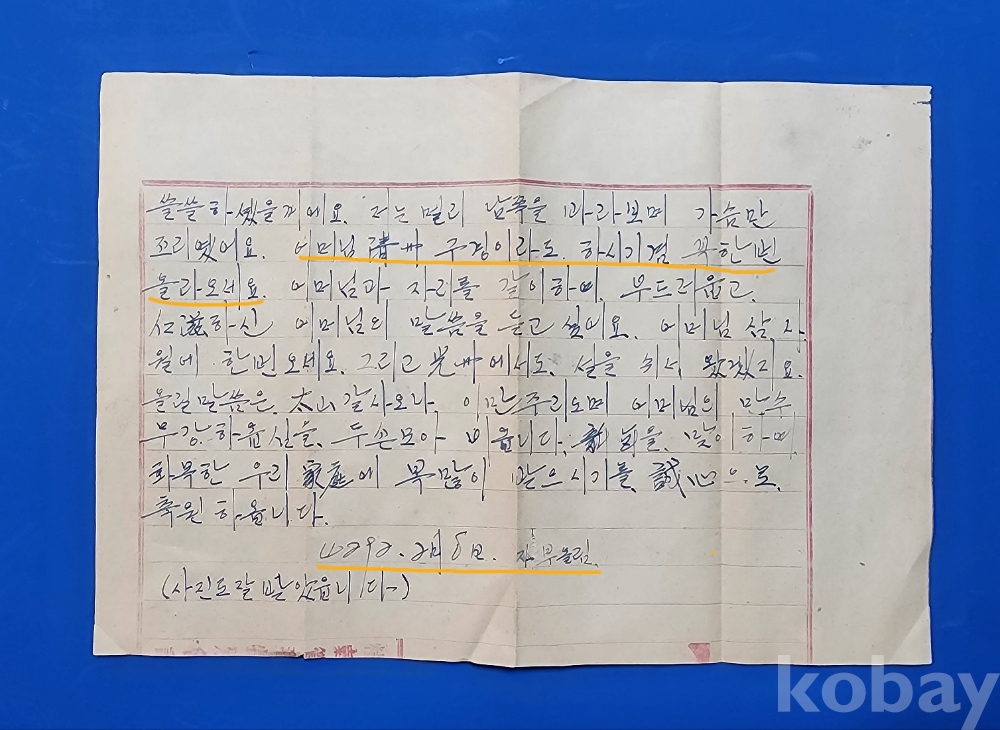 쓸쓸하셨을게에요. 저는 멀리 남쪽을 바라보며 가슴만
조리였어요. 어머님 淸州 구경이라도 하시기겸 꼭한번
올라오세요. 어머님과 자리를 같이하며, 부드러웁고,
仁滋하신 어머님의 말씀을 듣고 싶어요. 어머님 삼,사
월에 한번 오세요. 그리고 光州에서도, 설을 쉬서 왔겠지요.
올릴말씀은, 太山 같사오나, 이만주리오며 어머님의 만수
무강하옵심을, 두손모아 비옵니다. 맞이하며
화목한 우리 家庭에 복많이 받으시기를, 誠心으로,
축원 하옵니다.
4292. 2月 8日. 자부올림.
(사진도 잘 받았읍니다)
kobay